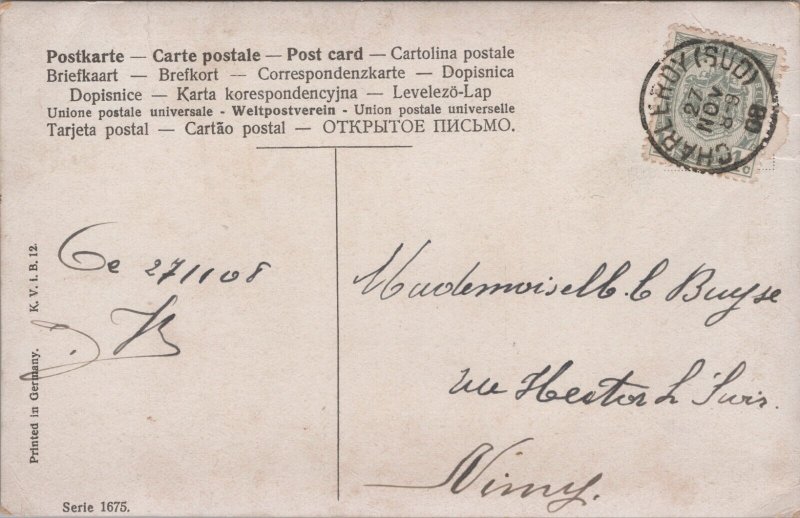 Postkarte — Carte postale — Post card — Cartolina postale
Briefkaart — Brefkort — Correspondenzkarte — Dopisnica
Dopisnice — Karta korespondencyjna — Levelező-Lap
Unione postale universale - Weltpostverein - Union postale universelle
Tarjeta postal — Cartão postal — ОТКРЫТОЕ ПИСЬМО.
CHARLEROY (SUD)
27
NOV
8-9
08
Ce 27/11 08
Mademoiselle. C Buyse
rue Hector
Nimy.
Printed in Germany. K. V. i. B. 12.
Serie 1675.